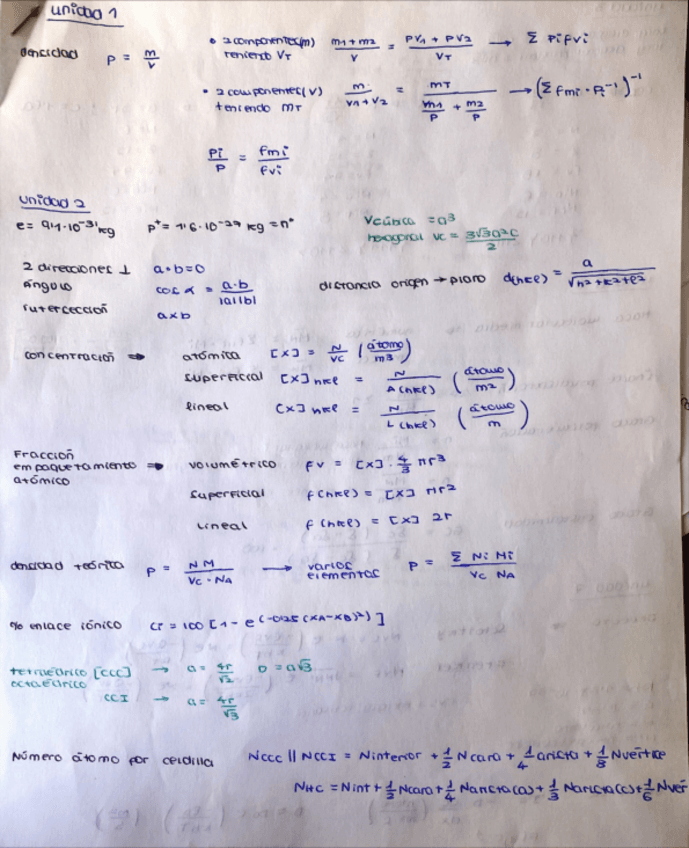 unidad 1
densidad P = m/V
• 2 componentes(m) teniendo VT (m1+m2)/V = (PV1 + PV2)/VT → Σ Pi fvi
• 2 componentes(V) teniendo mT m/(V1+V2) = mT/(m1/P + m2/P) → (Σ fmi · Pi⁻¹)⁻¹
Pi/P = fmi/fvi
unidad 2
e = 9'1·10⁻³¹ kg P⁺ = 1'6·10⁻²⁷ kg = n°
Vcúbica = a³
hexagonal Vc = 3√3a²c/2
2 direcciones ⊥ a·b=0
ángulo cos α = a·b/|a||b|
intersección axb
distancia origen → plano d(hkl) = a/√(h²+k²+l²)
concentración ⇒ atómica [X] = N/Vc (átomo/m3)
superficial [X]hkl = N/A(hkl) (átomo/m2)
lineal [X]hkl = N/L(hkl) (átomo/m)
Fracción
empaquetamiento ⇒ volumétrico fv = [X] · 4/3 πr³
atómico
superficial f(hkl) = [X] πr²
Lineal f(hkl) = [X] 2r
densidad teórica P = N M/(Vc · NA) → varios elementos P = Σ Ni Mi/(Vc NA)
% enlace iónico CI = 100 [1 - e^(-0'25 (XA-XB)²)]
tetraédrico [CCC] → a = 4r/√2 D = a√3
octaédrico
CCI → a = 4r/√3
Número átomo por celdilla NCCC || NCCI = Ninterior + 1/2 Ncara + 1/4 arista + 1/8 Nvértice
NHC = Nint + 1/2 Ncara + 1/4 Narista(a) + 1/3 Narista(c) + 1/6 Nvér